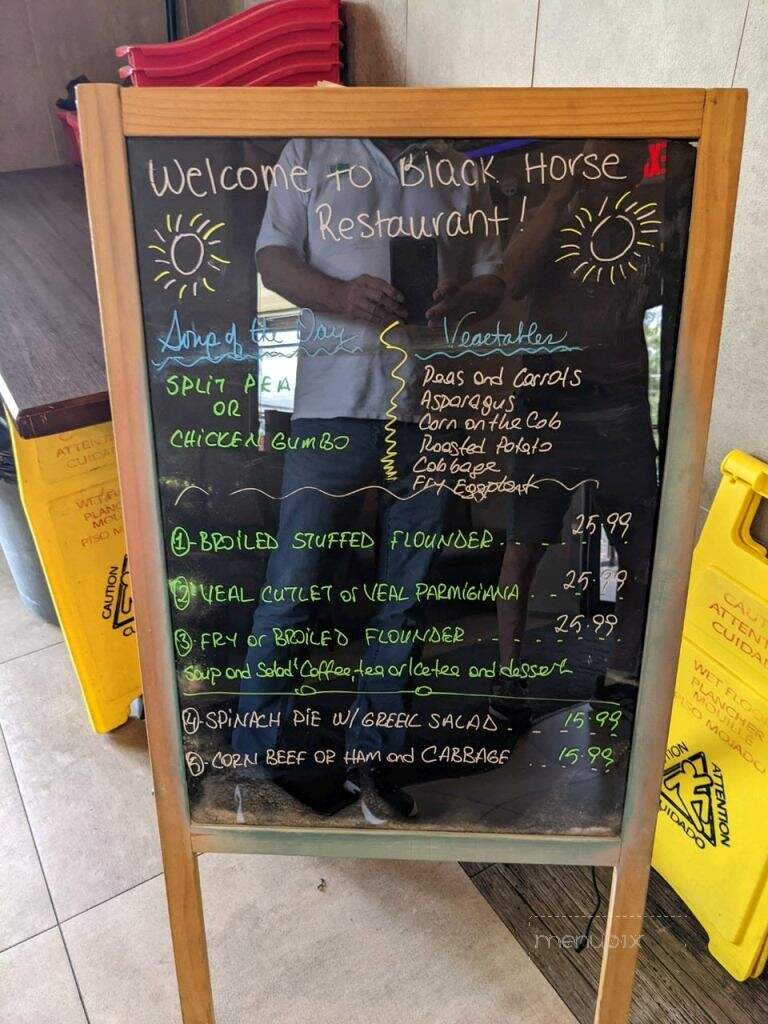 Welcome to Black Horse
Restaurant!
Soup of the Day
SPLIT PEA
OR
CHICKEN GUMBO
Vegetables
Peas and Carrots
Asparagus
Corn on the Cob
Roasted Potato
Cabbage
Fry Eggplant
1-BROILED STUFFED FLOUNDER.. - . - 25.99
2-VEAL CUTLET or VEAL PARMIGIANA . - - 25.99
3-FRY or BROILED FLOUNDER - - - - - - 25.99
Soup and Salad' Coffee, tea or Icetea and dessert
4-SPINACH PIE W/ GREEK SALAD. - - 15.99
5-CORN BEEF OR HAM and CABBAGE - - 15.99
ATTENTI
CUIDADO
WET FL
PLANC
MOU
PISO MO
CAUTION
CAUT
ATTENT
CUIDAD
WET FLOO
PLANCHER
MOUILLE
PISO MOJADO
ATTENTION
CUIDADO
menubix